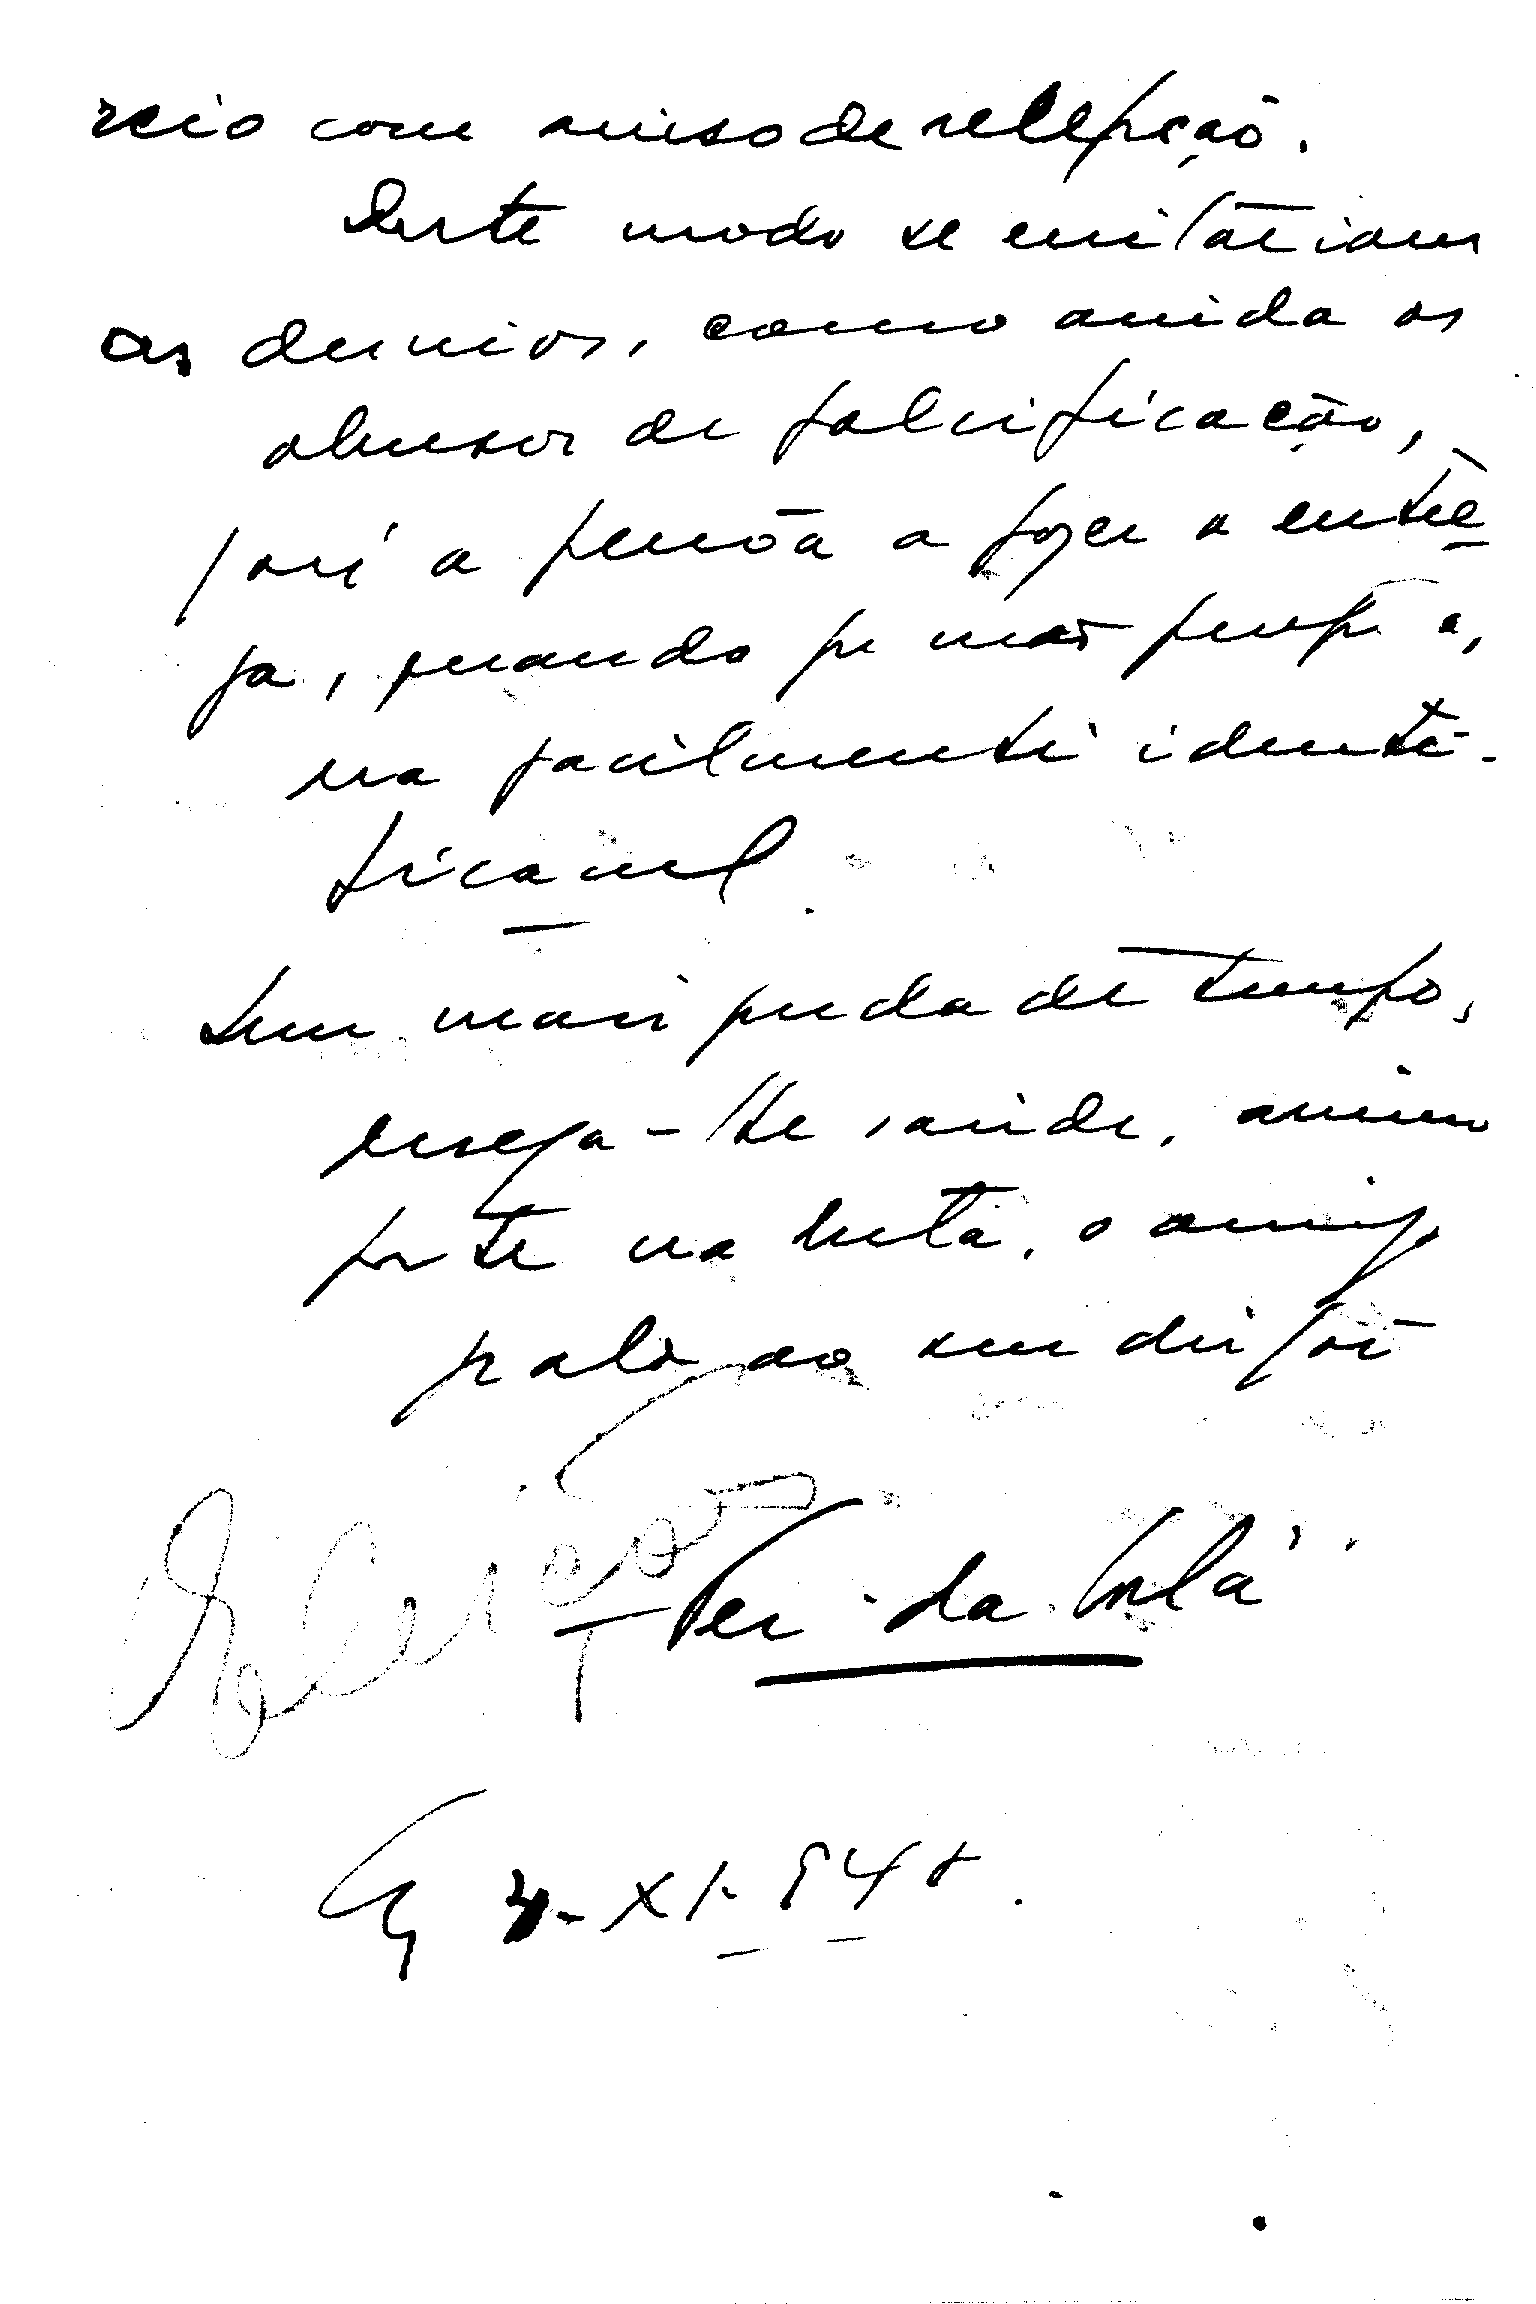 reio com aviso de recepção.
Deste modo se evitariam
os desvios, como ainda os
abusos de falsificação,
pois a pessoa a fazer a entre
ga, quando se não própria,
era facilmente identi-
ficavel.
Sem mais perda de tempo,
deseja-lhe saude, animo
forte na luta, o amigo
ao seu dispor
da
4-XI-948.